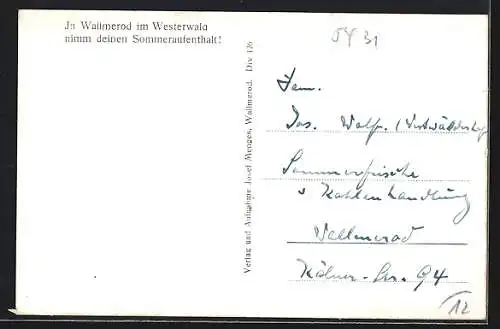 In Wallmerod im Westerwald
nimm deinen Sommeraufenthalt!
5431
Verlag und Aufnahme Josef Menges, Wallmerod. Div 126
Fam.
Jos.
Sommerfrische
Kohlenhandlung
Wallmerod
Kölner-Str. 94
12